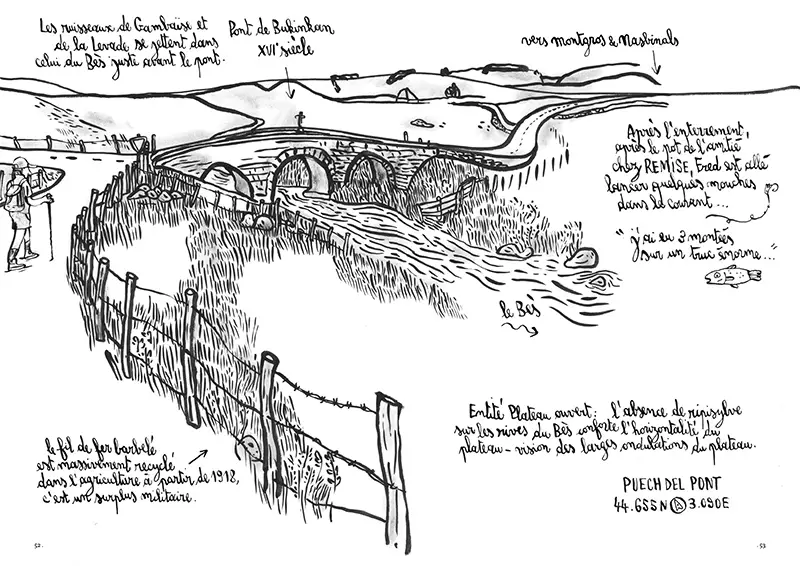 Les ruisseaux de Gambaïse et
de la Levade se jettent dans
celui du Bès juste avant le pont.
Pont de Bukinkan
XVIᵉ siècle
vers montgros & Nasbinals
Après l'enterrement,
après le pot de l'amitié
chez REMISE, Fred est allé
lancer quelques mouches
dans le courant...
"j'ai eu 3 montées
sur un truc énorme..."
le Bès
le fil de fer barbelé
est massivement recyclé
dans l'agriculture à partir de 1918,
c'est un surplus militaire.
Entité Plateau ouvert : l'absence de ripisylve
sur les rives du Bès conforte l'horizontalité du
plateau - vision des larges ondulations du plateau.
PUECH DEL PONT
44.655N 3.090E
52.
.53